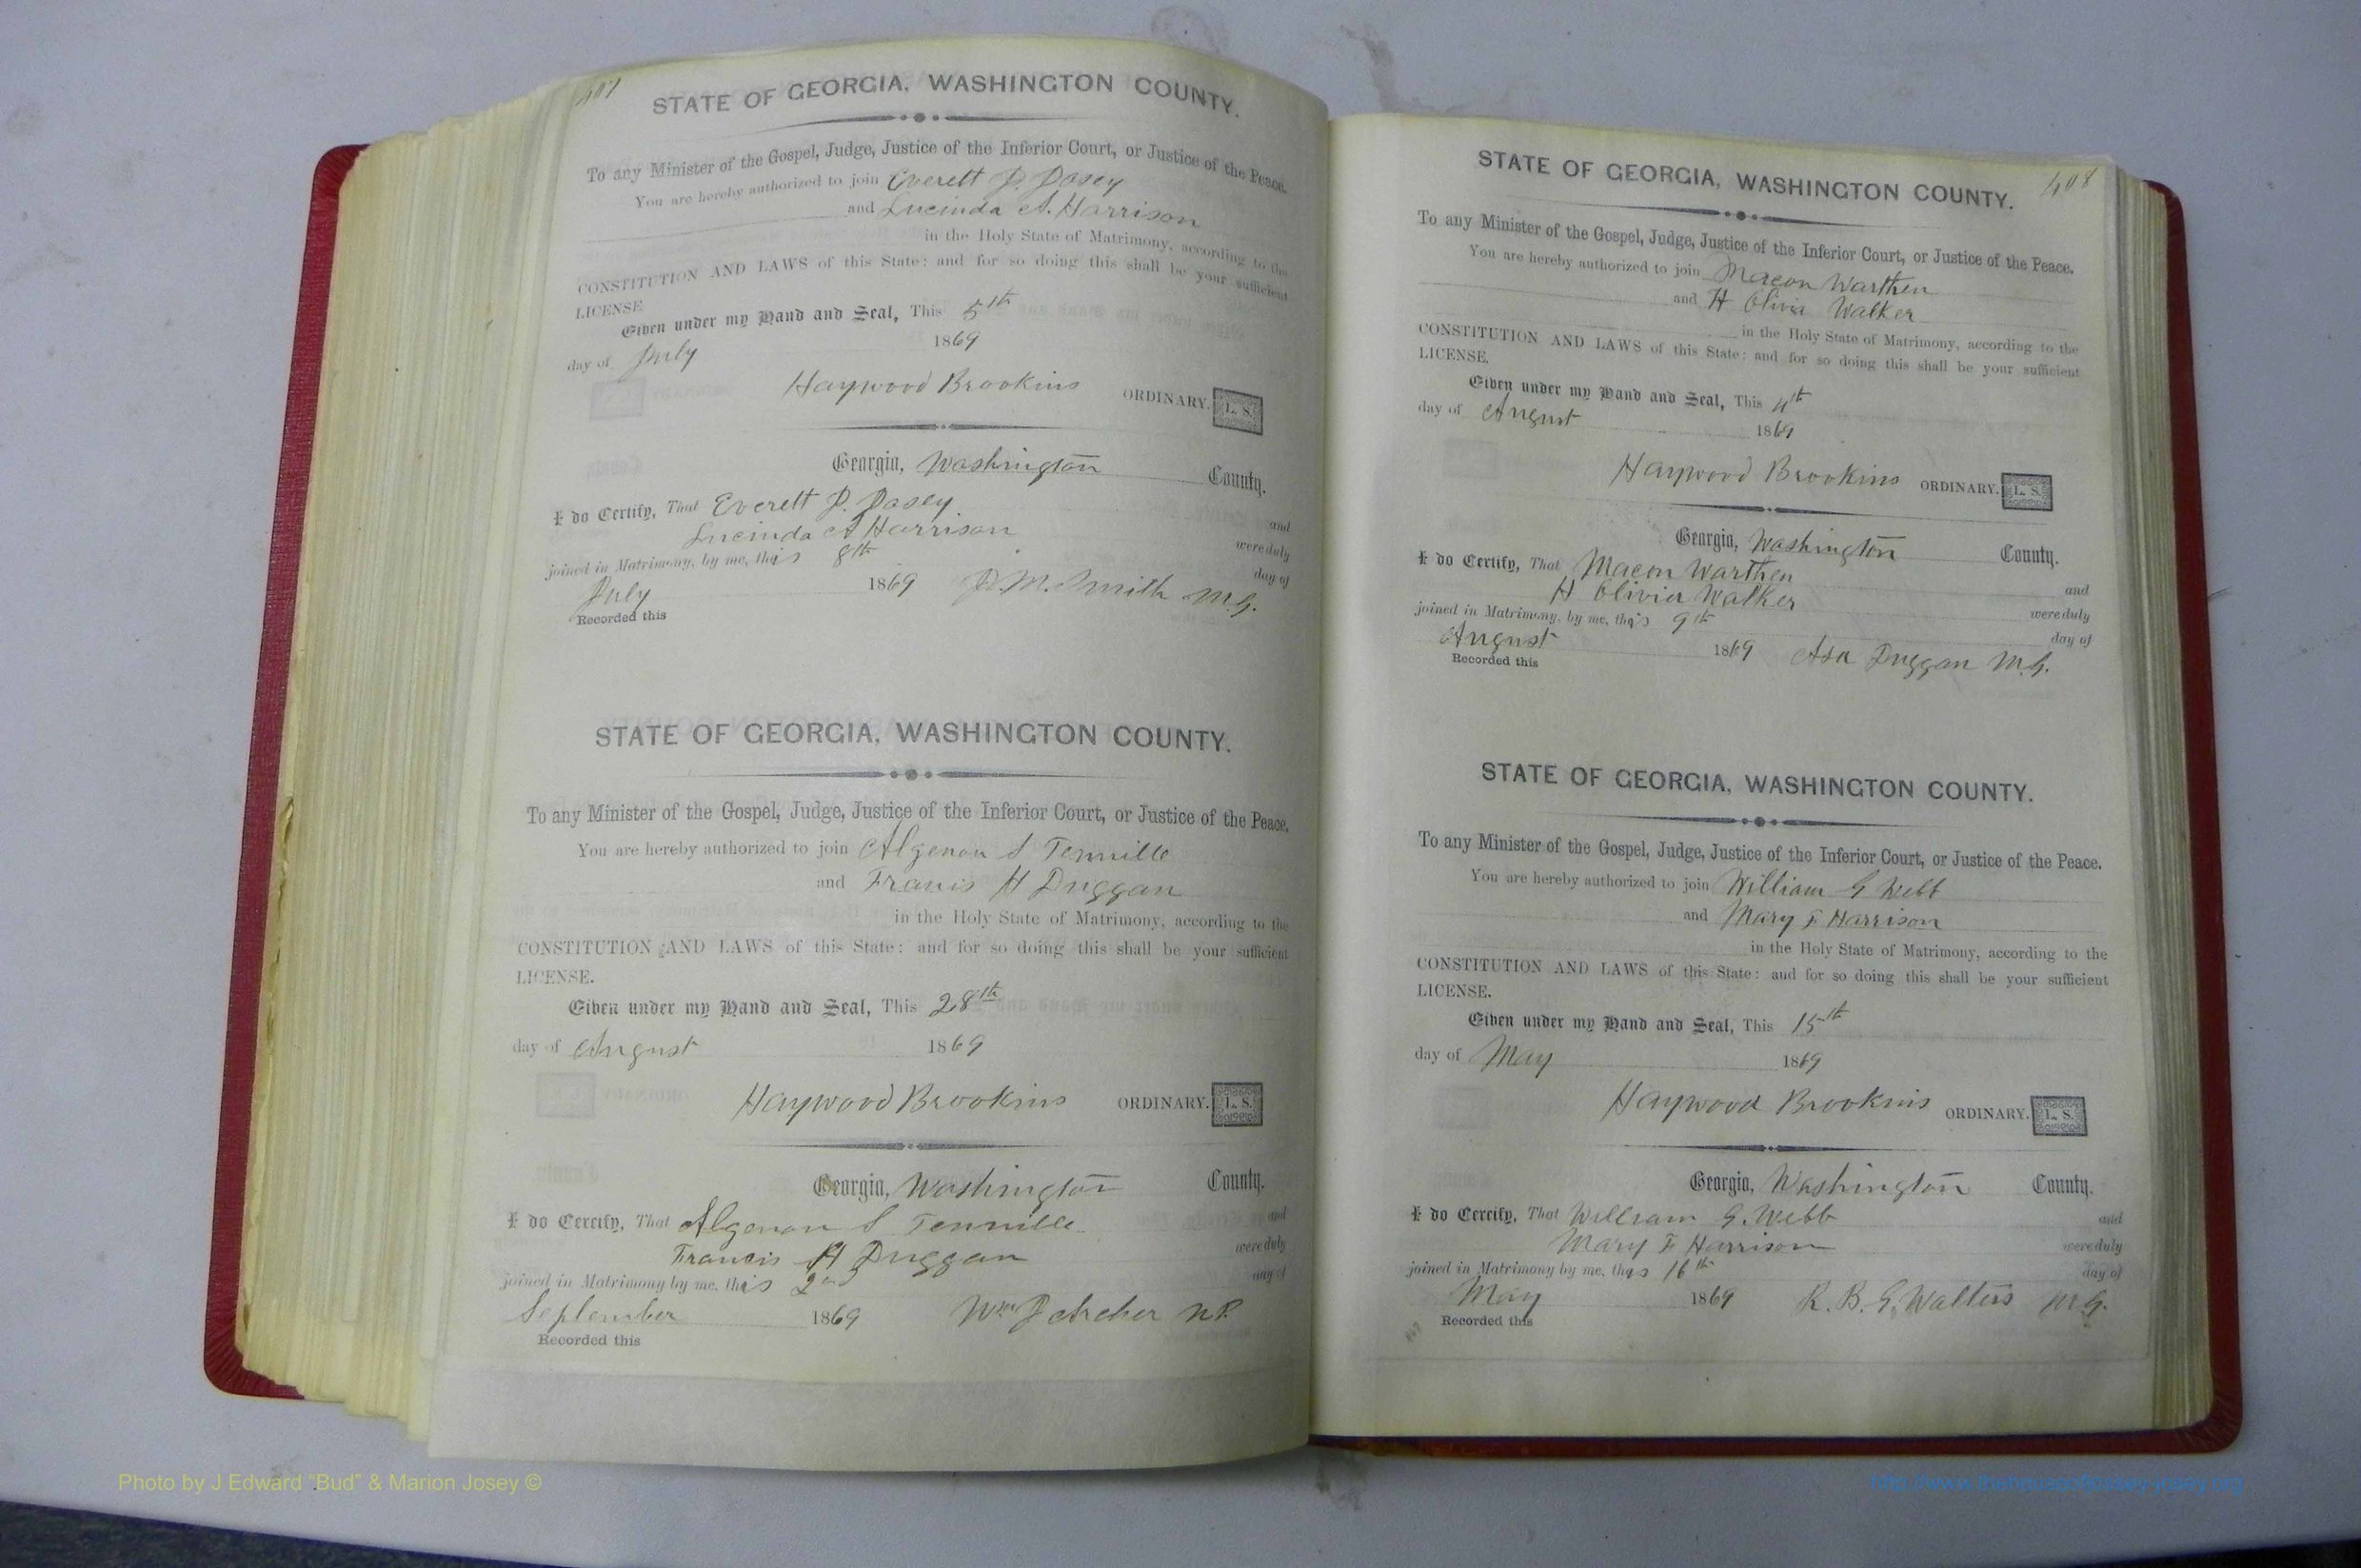 407
STATE OF GEORGIA, WASHINGTON COUNTY.
To any Minister of the Gospel, Judge, Justice of the Inferior Court, or Justice of the Peace.
You are hereby authorized to join Everett D. Dasey
and Lucinda A. Harrison
in the Holy State of Matrimony, according to the
CONSTITUTION AND LAWS of this State: and for so doing this shall be your sufficient
LICENSE
Given under my Hand and Seal, This 5th
day of July 1869
Haywood Brookins ORDINARY. L. S.
Georgia, Washington County.
I do Certify, That Everett D. Dasey and
Lucinda A Harrison were duly
joined in Matrimony, by me, this 8th day of
July 1869 D. M. Smith M.G.
Recorded this
STATE OF GEORGIA, WASHINGTON COUNTY.
To any Minister of the Gospel, Judge, Justice of the Inferior Court, or Justice of the Peace.
You are hereby authorized to join Algenon S Tennille
and Francis H Duggan
in the Holy State of Matrimony, according to the
CONSTITUTION AND LAWS of this State: and for so doing this shall be your sufficient
LICENSE.
Given under my Hand and Seal, This 28th
day of August 1869
Haywood Brookins ORDINARY. L. S.
Georgia, Washington County.
I do Certify, That Algenon S Tennille and
Francis H Duggan were duly
joined in Matrimony by me, this 2nd day of
September 1869 Wm Archer N.P.
Recorded this
408
STATE OF GEORGIA, WASHINGTON COUNTY.
To any Minister of the Gospel, Judge, Justice of the Inferior Court, or Justice of the Peace.
You are hereby authorized to join Macon Warthen
and H Olivia Walker
in the Holy State of Matrimony, according to the
CONSTITUTION AND LAWS of this State: and for so doing this shall be your sufficient
LICENSE.
Given under my Hand and Seal, This 4th
day of August 1869
Haywood Brookins ORDINARY. L. S.
Georgia, Washington County.
I do Certify, That Macon Warthen and
H Olivia Walker were duly
joined in Matrimony, by me, this 9th day of
August 1869 Asa Duggan M.G.
Recorded this
STATE OF GEORGIA, WASHINGTON COUNTY.
To any Minister of the Gospel, Judge, Justice of the Inferior Court, or Justice of the Peace.
You are hereby authorized to join William G Webb
and Mary F Harrison
in the Holy State of Matrimony, according to the
CONSTITUTION AND LAWS of this State: and for so doing this shall be your sufficient
LICENSE.
Given under my Hand and Seal, This 15th
day of May 1869
Haywood Brookins ORDINARY. L. S.
Georgia, Washington County.
I do Certify, That William G. Webb and
Mary F Harrison were duly
joined in Matrimony by me, this 16th day of
May 1869 R. B. G. Walters M.G.
Recorded this
Photo by J Edward "Bud" & Marion Josey ©